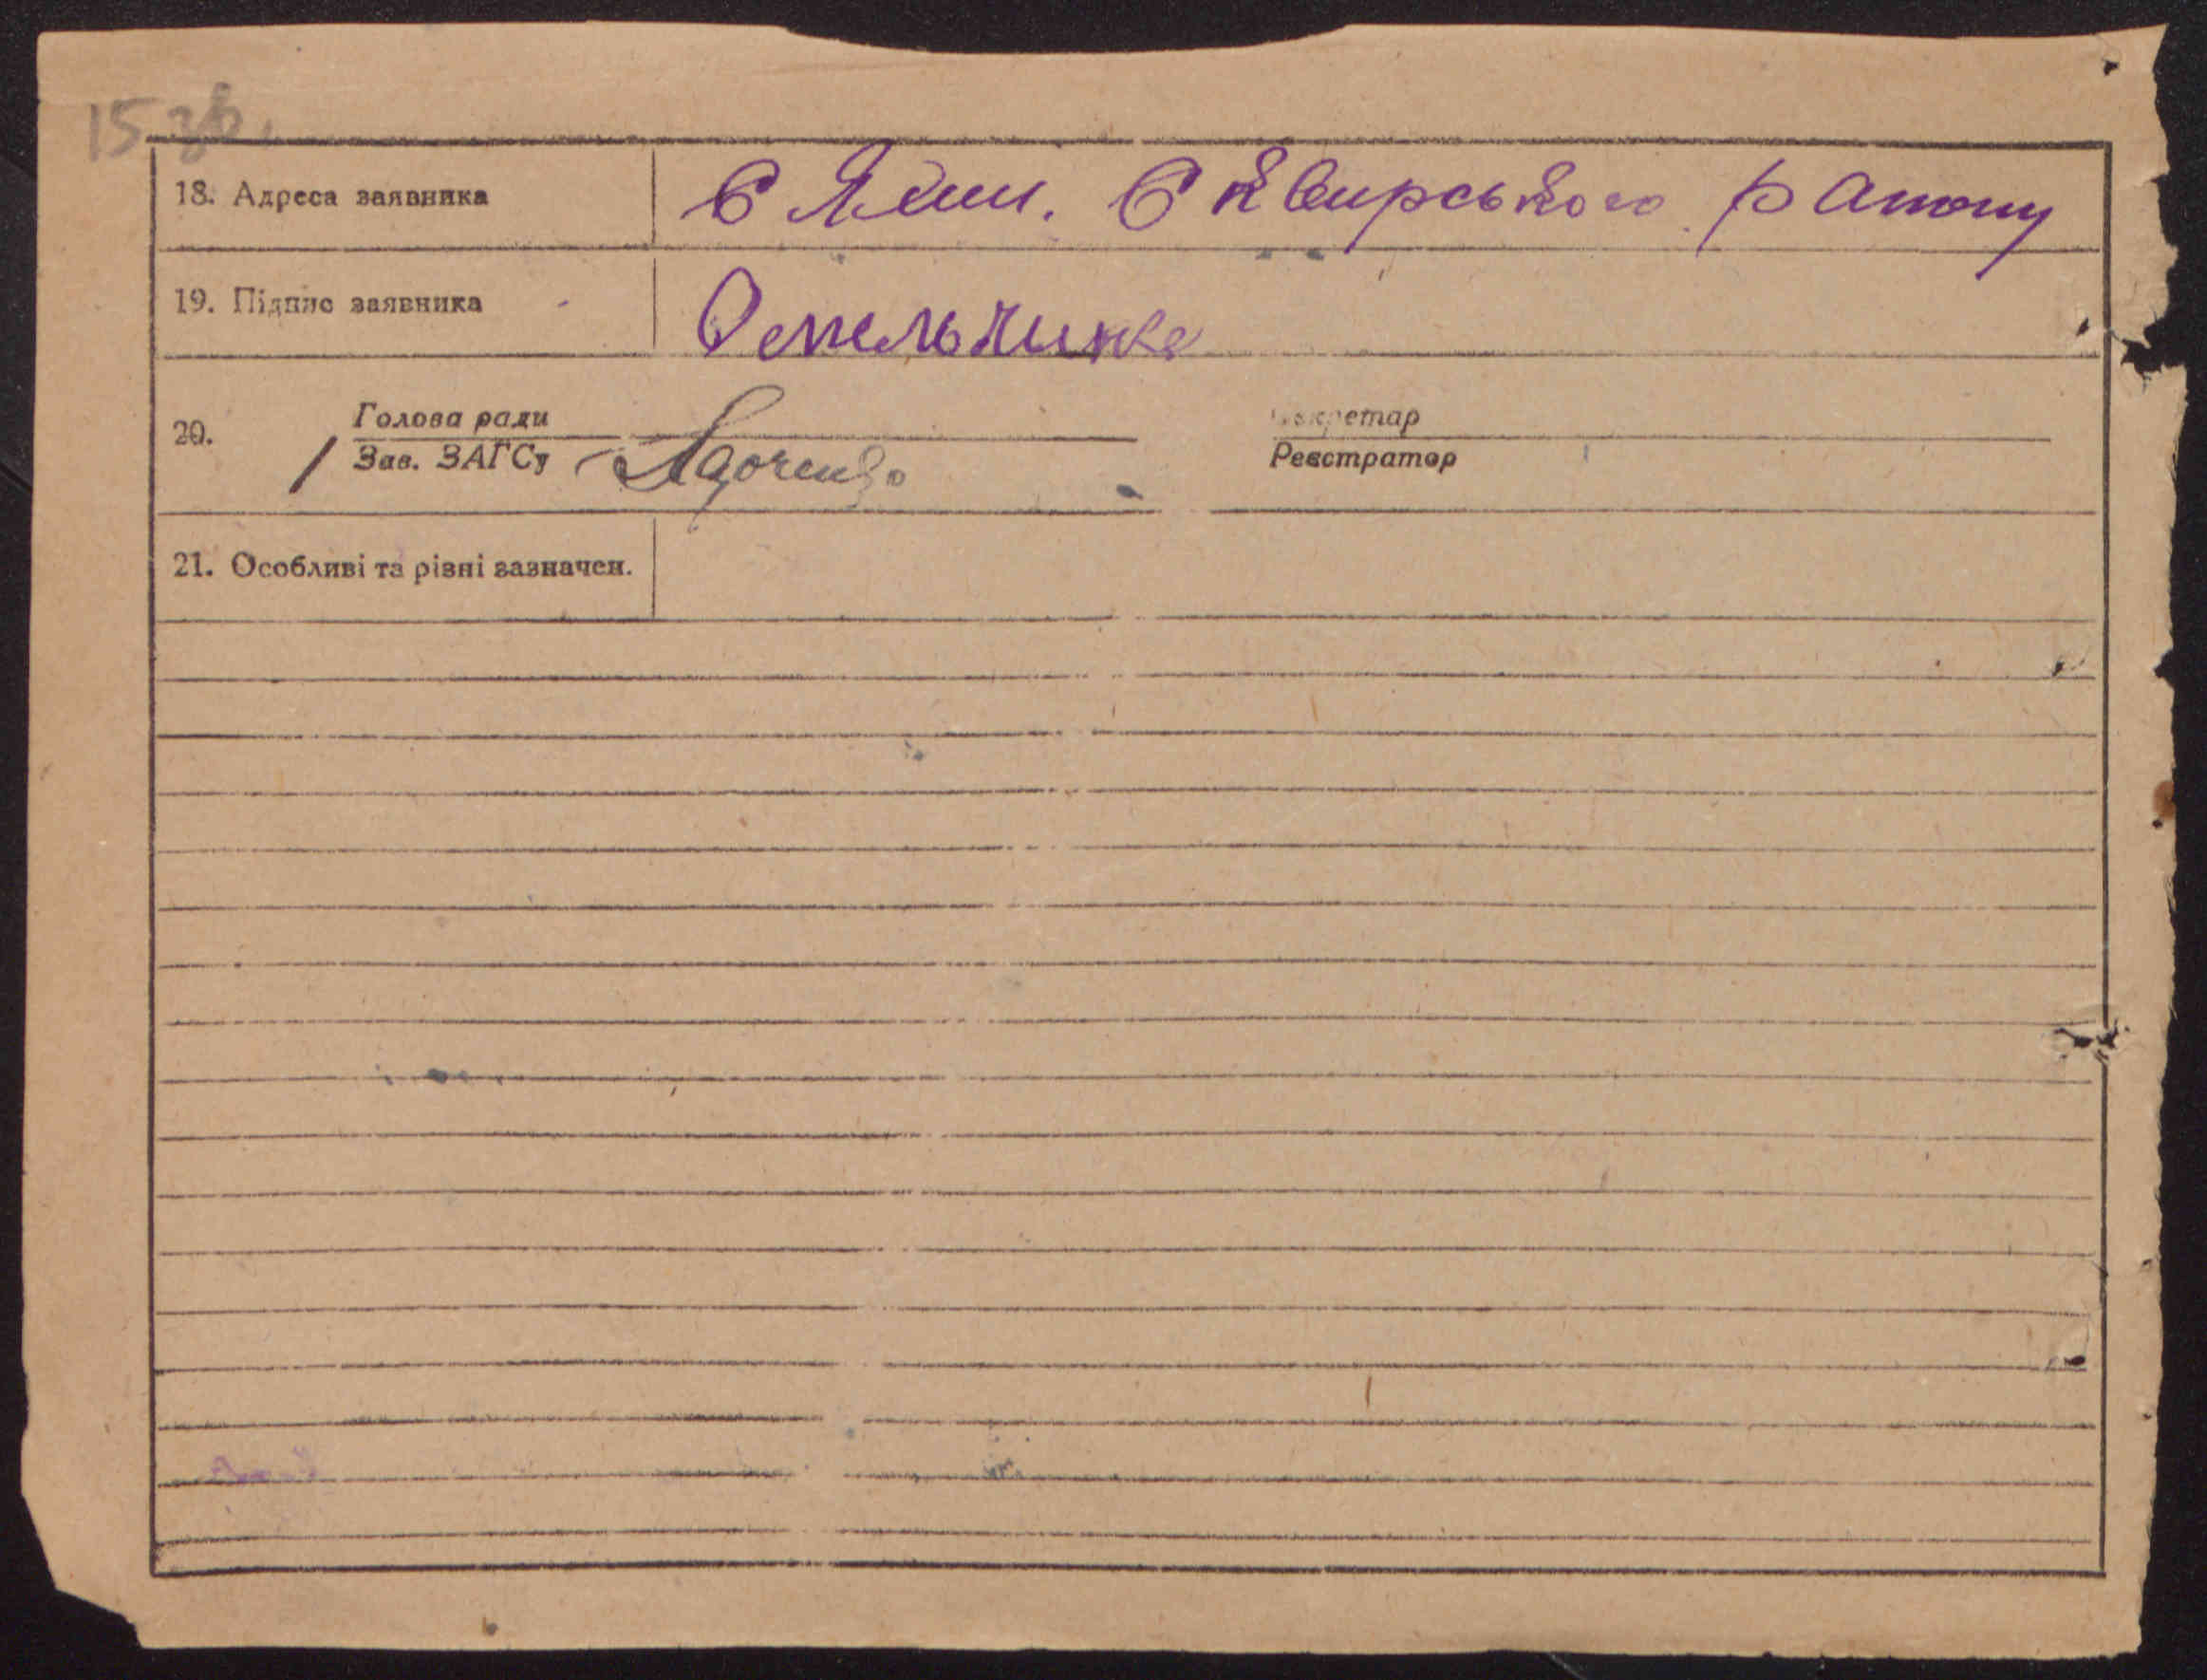 15 зв.
18. Адреса заявника С Ями. Сквирського району
19. Підпис заявника Омельчинко
20. Голова ради Секретар
Зав. ЗАГСу Реєстратор
21. Особливі та різні зазначен.